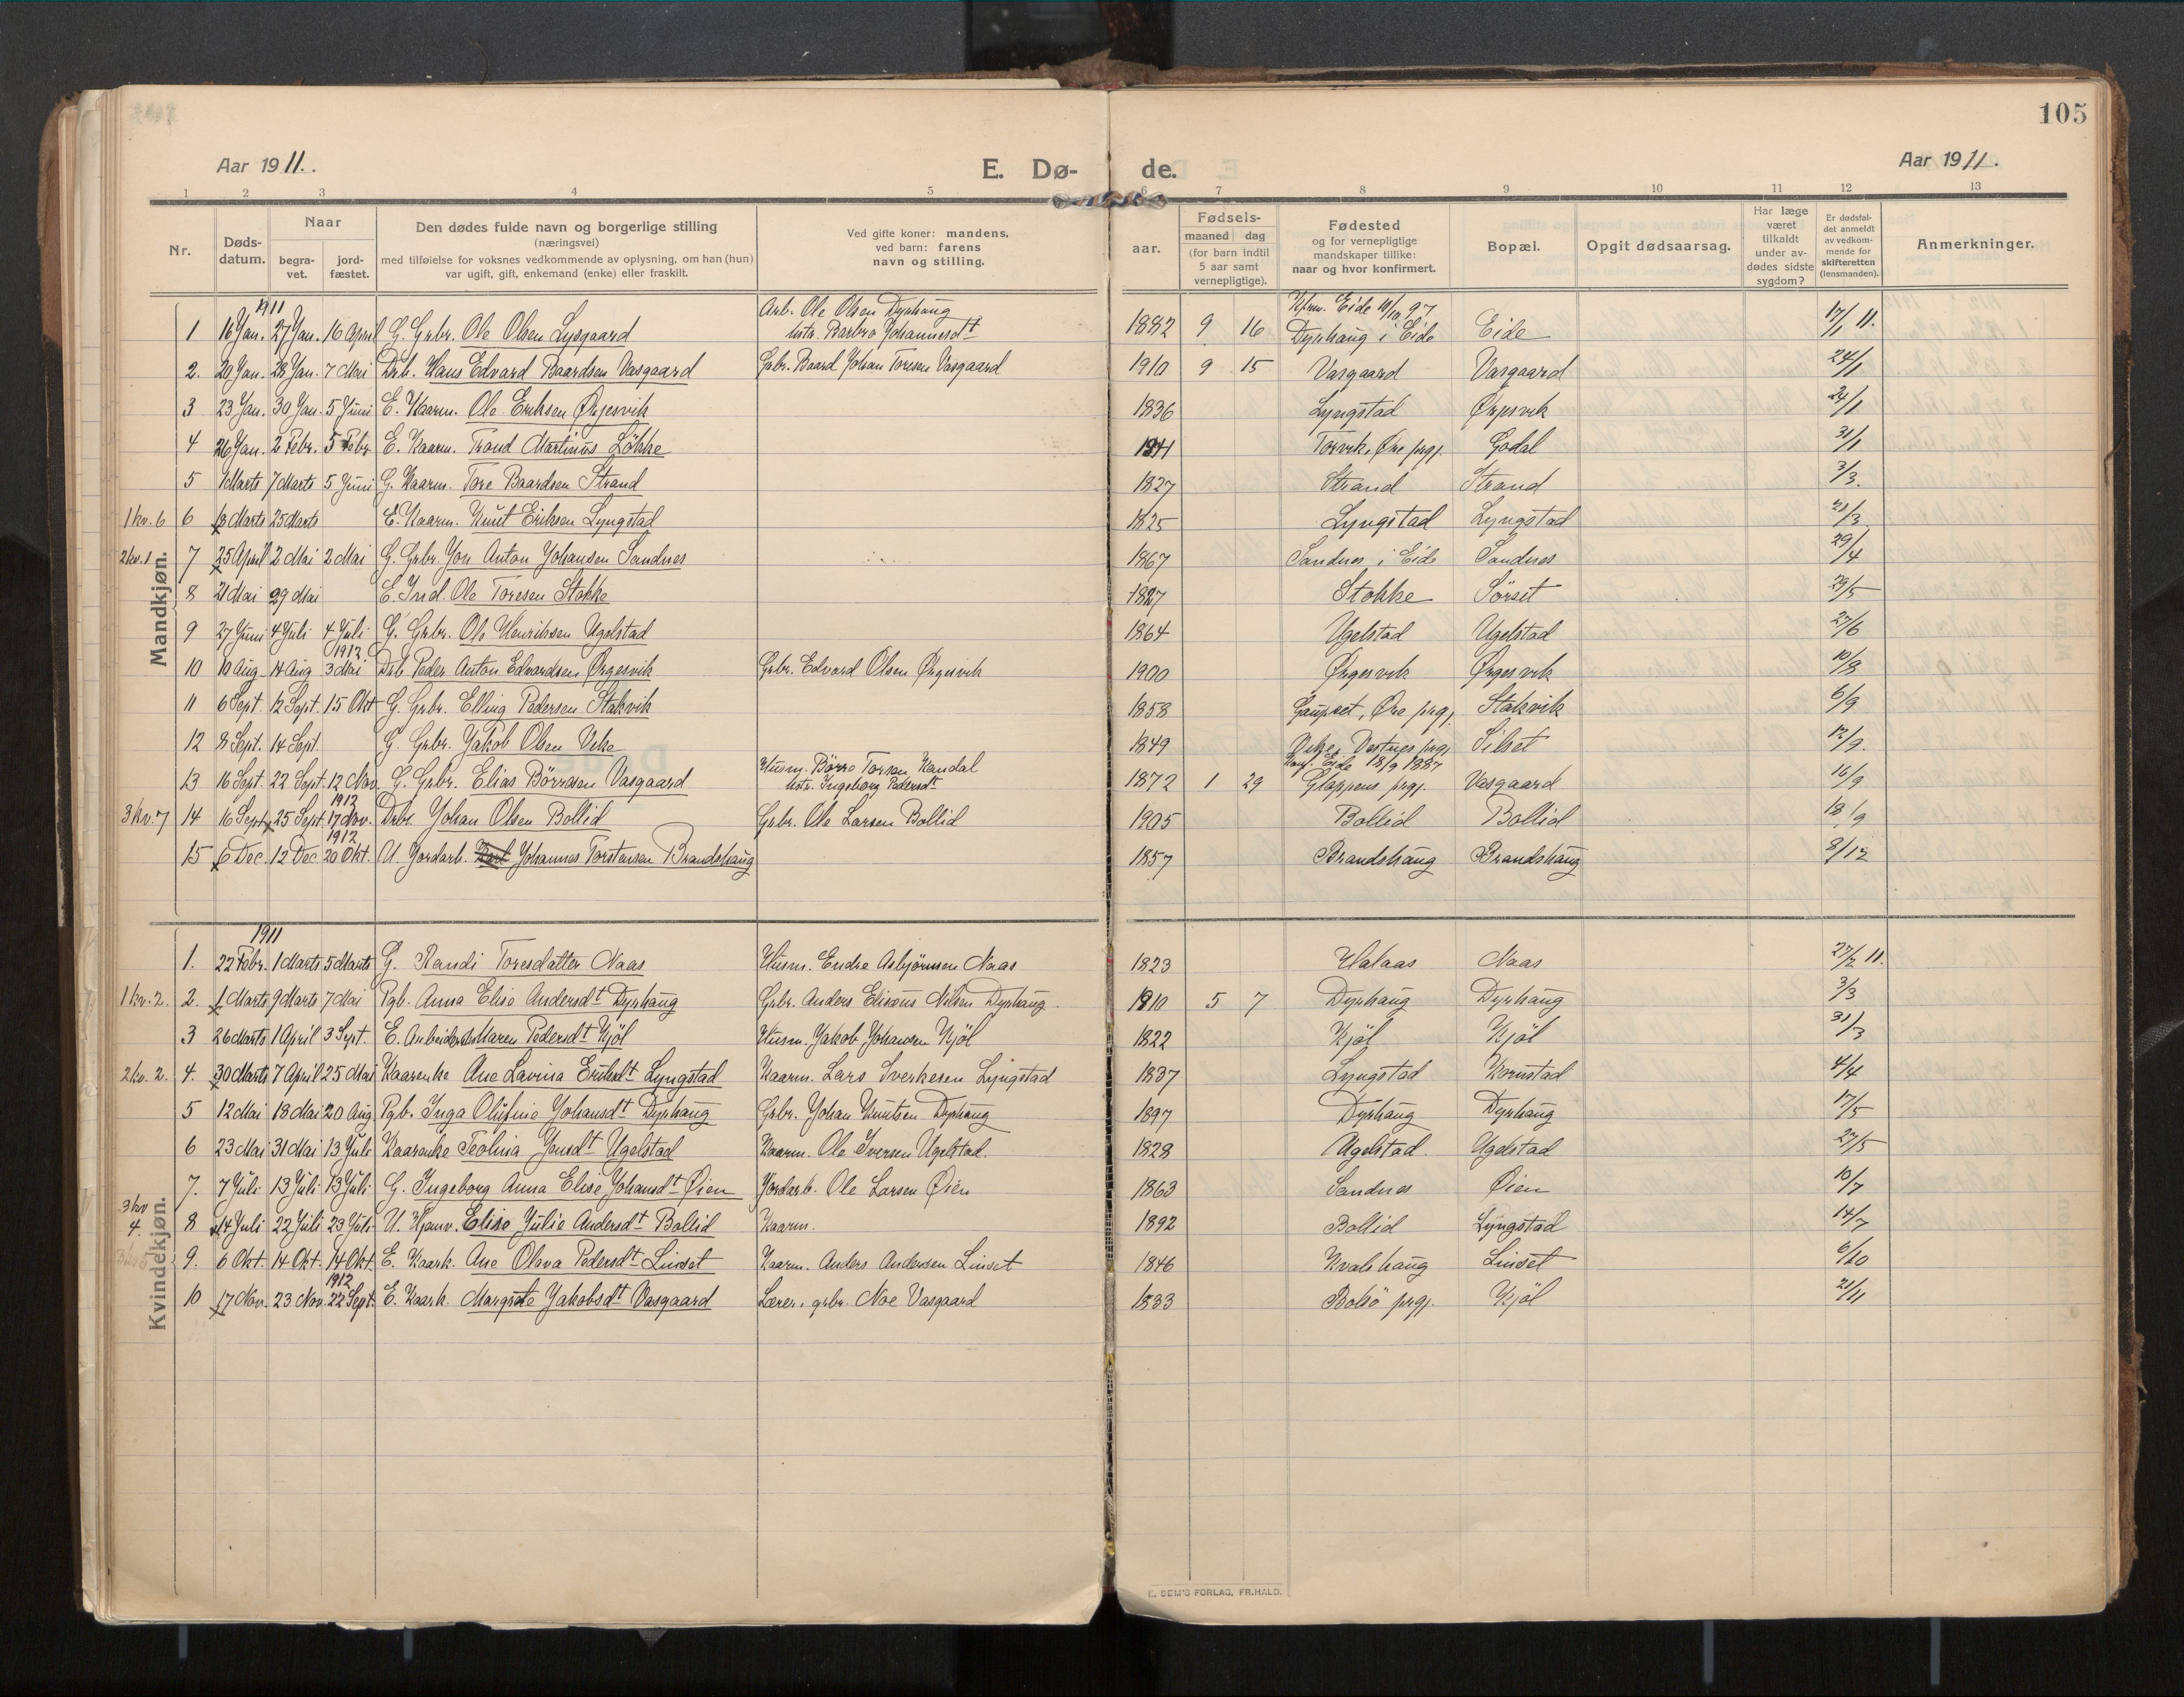 105
Aar 1911. E. Dø- de. Aar 1911.
1 2 3 4 5 6 7 8 9 10 11 12 13
Nr. Døds-datum. Naar begra-vet. jord-fæstet. Den dødes fulde navn og borgerlige stilling (næringsvei) med tilføielse for voksnes vedkommende av oplysning, om han (hun) var ugift, gift, enkemand (enke) eller fraskilt. Ved gifte koner: mandens, ved barn: farens navn og stilling. Fødsels- aar. maaned dag (for barn indtil 5 aar samt vernepligtige). Fødested og for vernepligtige mandskaper tillike: naar og hvor konfirmert. Bopæl. Opgit dødsaarsag. Har læge været tilkaldt under av-dødes sidste sygdom? Er dødsfal-det anmeldt av vedkom-mende for skifteretten (lensmanden). Anmerkninger.
Mandkjøn.
1911 Arb. Ole Olsen Dyrhaug Kfrm. Eide 10/10 97
1 16 Jan. 27 Jan. 16 April G. Grbr. Ole Olsen Lysgaard hstr. Barbro Johannesdt 1882 9 16 Dyrhaug i Eide Eide 17/1 11.
2. 20 Jan. 28 Jan. 7 Mai Drb. Hans Edvard Baardsen Vasgaard Grbr. Baard Johan Toresen Vasgaard 1910 9 15 Vasgaard Vasgaard 24/1
3 23 Jan. 30 Jan. 5 Juni E. Kaarm. Ole Eriksen Ørjesvik 1836 Lyngstad Ørjesvik 24/1
4 26 Jan. 2 Febr. 5 Febr. E. Kaarm. Trond Martinus Løkke 1841 Torvik, Øre prgj. Godal 31/1
5 1 Marts 7 Marts 5 Juni G. Kaarm. Tore Baardsen Strand 1827 Strand Strand 3/3.
1 kv. 6 6 18 Marts 25 Marts E. Kaarm. Knut Eriksen Lyngstad 1825 Lyngstad Lyngstad 21/3
2 kv. 1 7 25 April 2 Mai 2 Mai G. Grbr. Jon Anton Johansen Sandnes 1867 Sandnes i Eide Sandnes 29/4
8 21 Mai 29 Mai E. Ind. Ole Toresen Stokke 1827 Stokke Sørset 23/5
9 27 Juni 4 Juli 4 Juli G. Grbr. Ole Henriksen Ugelstad 1864 Ugelstad Ugelstad 27/6
1912
10 10 Aug. 14 Aug 3 Mai Drb. Peder Anton Edvardsen Ørgesvik Grbr. Edvard Olsen Ørgesvik 1900 Ørgesvik Ørgesvik 10/8
11 6 Sept. 12 Sept. 15 Okt G. Grbr. Elling Pedersen Stakvik 1858 Gaupset, Øre prgj. Stakvik 6/9
12 8 Sept. 14 Sept. G. Grbr. Jakob Olsen Vike 1849 Vike, prgj. Silset 12/9.
Husm. Børre Torsen Kandal Konf. Eide 18/9 1887
13 16 Sept. 22 Sept. 12 Nov G. Grbr. Elias Børresen Vasgaard hstr. Ingeborg Pedersdt 1872 1 29 prgj. Vasgaard 16/9
1912
3 kv. 7 14 16 Sept. 25 Sept. 17 Nov. Drbr. Johan Olsen Bollid Grbr. Ole Larsen Bollid 1905 Bollid Bollid 18/9
1912
15 6 Dec. 12 Dec 20 Okt. U. Jordarb. Johannes Torstensen Brandshaug 1857 Brandshaug Brandshaug 8/12
Kvindekjøn.
1911
1. 22 Febr. 1 Marts 5 Marts G. Randi Toresdatter Naas Husm. Endre Asbjørnsen Naas 1823 Halaas Naas 27/2 11.
1 kv. 2. 2. 1 Marts 9 Marts 7 Mai Pgb. Anna Elise Andersdt Dyrhaug Grbr. Anders Elisæus Nilsen Dyrhaug 1910 5 7 Dyrhaug Dyrhaug 3/3
3 26 Marts 1 April 3 Sept. E. Maren Pedersdt Kjøl Husm. Jakob Johansen Kjøl 1822 Kjøl Kjøl 31/3
2 kv. 2. 4. 30 Marts 7 April 25 Mai Kaarenke Ane Lavina Eriksdt Lyngstad Kaarm. Lars Sverkesen Lyngstad 1837 Lyngstad Kornstad 4/4
5 12 Mai 18 Mai 20 Aug. Pgb. Inga Olufine Johansdt Dyrhaug Grbr. Johan Knutsen Dyrhaug 1897 Dyrhaug Dyrhaug 17/5
6 23 Mai 31 Mai 13 Juli Kaarenke Teolina Jensdt Ugelstad Kaarm. Ole Iversen Ugelstad. 1828 Ugelstad Ugelstad 27/5
7. 7 Juli 13 Juli 13 Juli G. Ingeborg Anna Elise Johansdt Øien Jordarb. Ole Larsen Øien 1863 Sandnes Øien 10/7
3 kv 4. 8 14 Juli 22 Juli 23 Juli U. Elise Julie Andersdt Bollid Kaarm. 1892 Bollid Lyngstad 14/7
9. 6 Okt. 14 Okt. 14 Okt. E. Kaark. Ane Olava Pedersdt Linset Kaarm. Anders Andersen Linset 1846 Kvalshaug Linset 6/10
1912
10 17 Nov. 23 Nov. 22 Sept. E. Kaark. Margrete Jakobsdt Vasgaard Lærer, grbr. Noe Vasgaard 1833 Bolsø prgj. Kjøl 21/11
E. SEM'S FORLAG, FR.HALD.